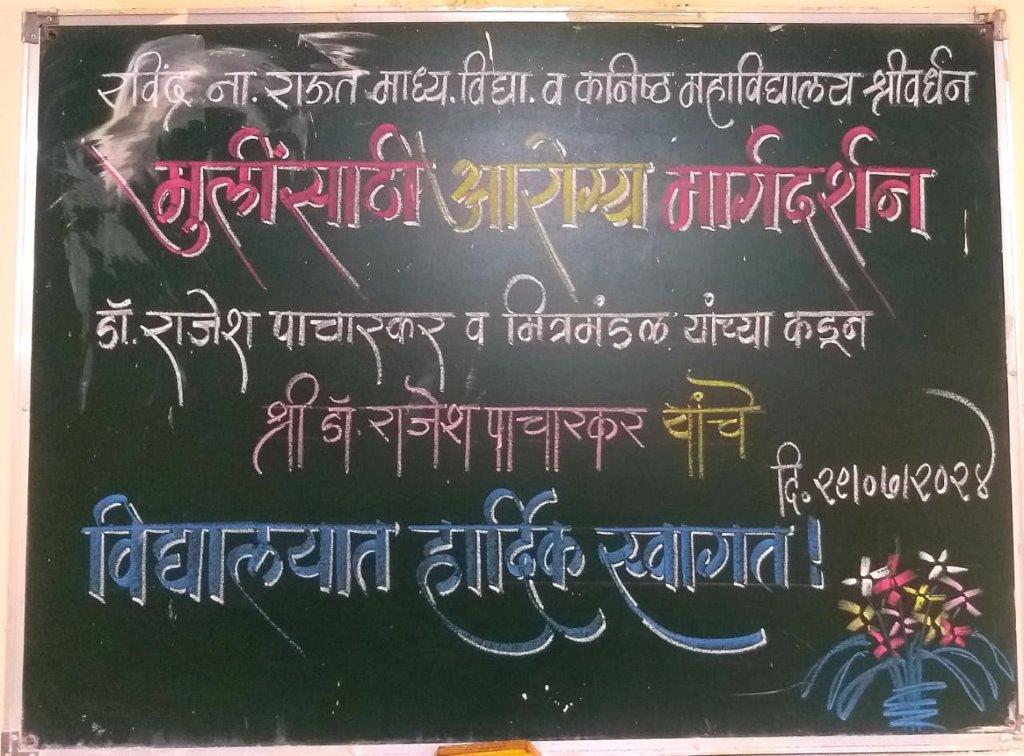 रविंद्र ना. राऊत माध्य. विद्या. व कनिष्ठ महाविद्यालय श्रीवर्धन
मुलींसाठी आरोग्य मार्गदर्शन
डॉ. राजेश पाचारकर व मित्रमंडळ यांच्या कडून
श्री डॉ. राजेश पाचारकर यांचे
दि. २९/०७/२०२४
विद्यालयात हार्दिक स्वागत!